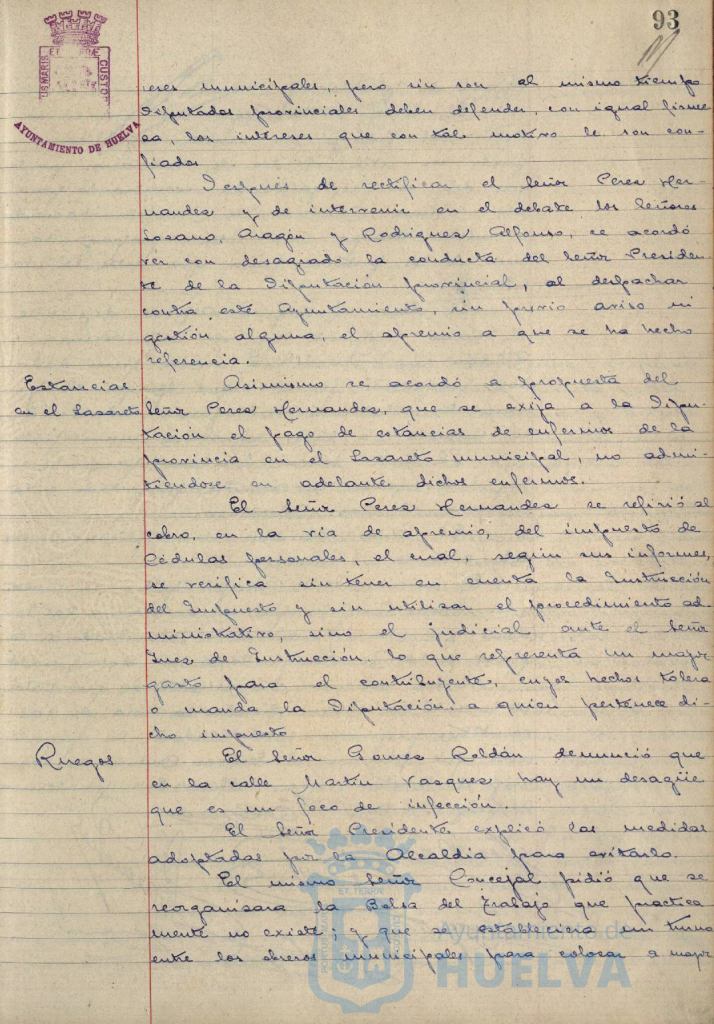 93
PORTUS MARIS ET TERRÆ CUSTODIA
AYUNTAMIENTO DE HUELVA
reses municipales, pero sin son al mismo tiempo
Diputados provinciales deben defender, con igual firme
za, los intereses que con tal motivo le son con-
fiados
Después de rectificar el Señor Perez Her-
nandez y de intervenir en el debate los Señores
Lozano, Aragón y Rodriguez Alfonso, se acordó
ver con desagrado la conducta del Señor Presiden-
te de la Diputación provincial, al despachar
contra este Ayuntamiento, sin previo aviso ni
gestión alguna, el apremio a que se ha hecho
referencia.
Estancias
en el Lazareto
Asimismo se acordó a propuesta del
Señor Perez Hernandez, que se exija a la Dipu-
tación el pago de estancias de enfermos de la
provincia en el Lazareto municipal, no admi-
tiendose en adelante dichos enfermos.
El Señor Perez Hernandez se refirió al
cobro, en la via de apremio, del impuesto de
Cédulas personales, el cual, según sus informes,
se verifica sin tener en cuenta la Instrucción
del Impuesto y sin utilizar el procedimiento ad-
ministrativo, sino el judicial ante el Señor
Juez de Instrucción. lo que representa un mayor
gasto para el contribuyente, cuyos hechos tolera
o manda la Diputación, a quien pertenece di-
cho impuesto
Ruegos
El Señor Gomez Roldán denunció que
en la calle Martin Vazquez hay un desagüe
que es un foco de infección.
El Señor Presidente explicó las medidas
adoptadas por la Alcaldia para evitarlo.
El mismo Señor Concejal pidió que se
reorganizara la Bolsa del Trabajo que practica
mente no existe; y que se estableciera un turno
entre los obreros municipales para colocar a mayor
Ayuntamiento de
HUELVA